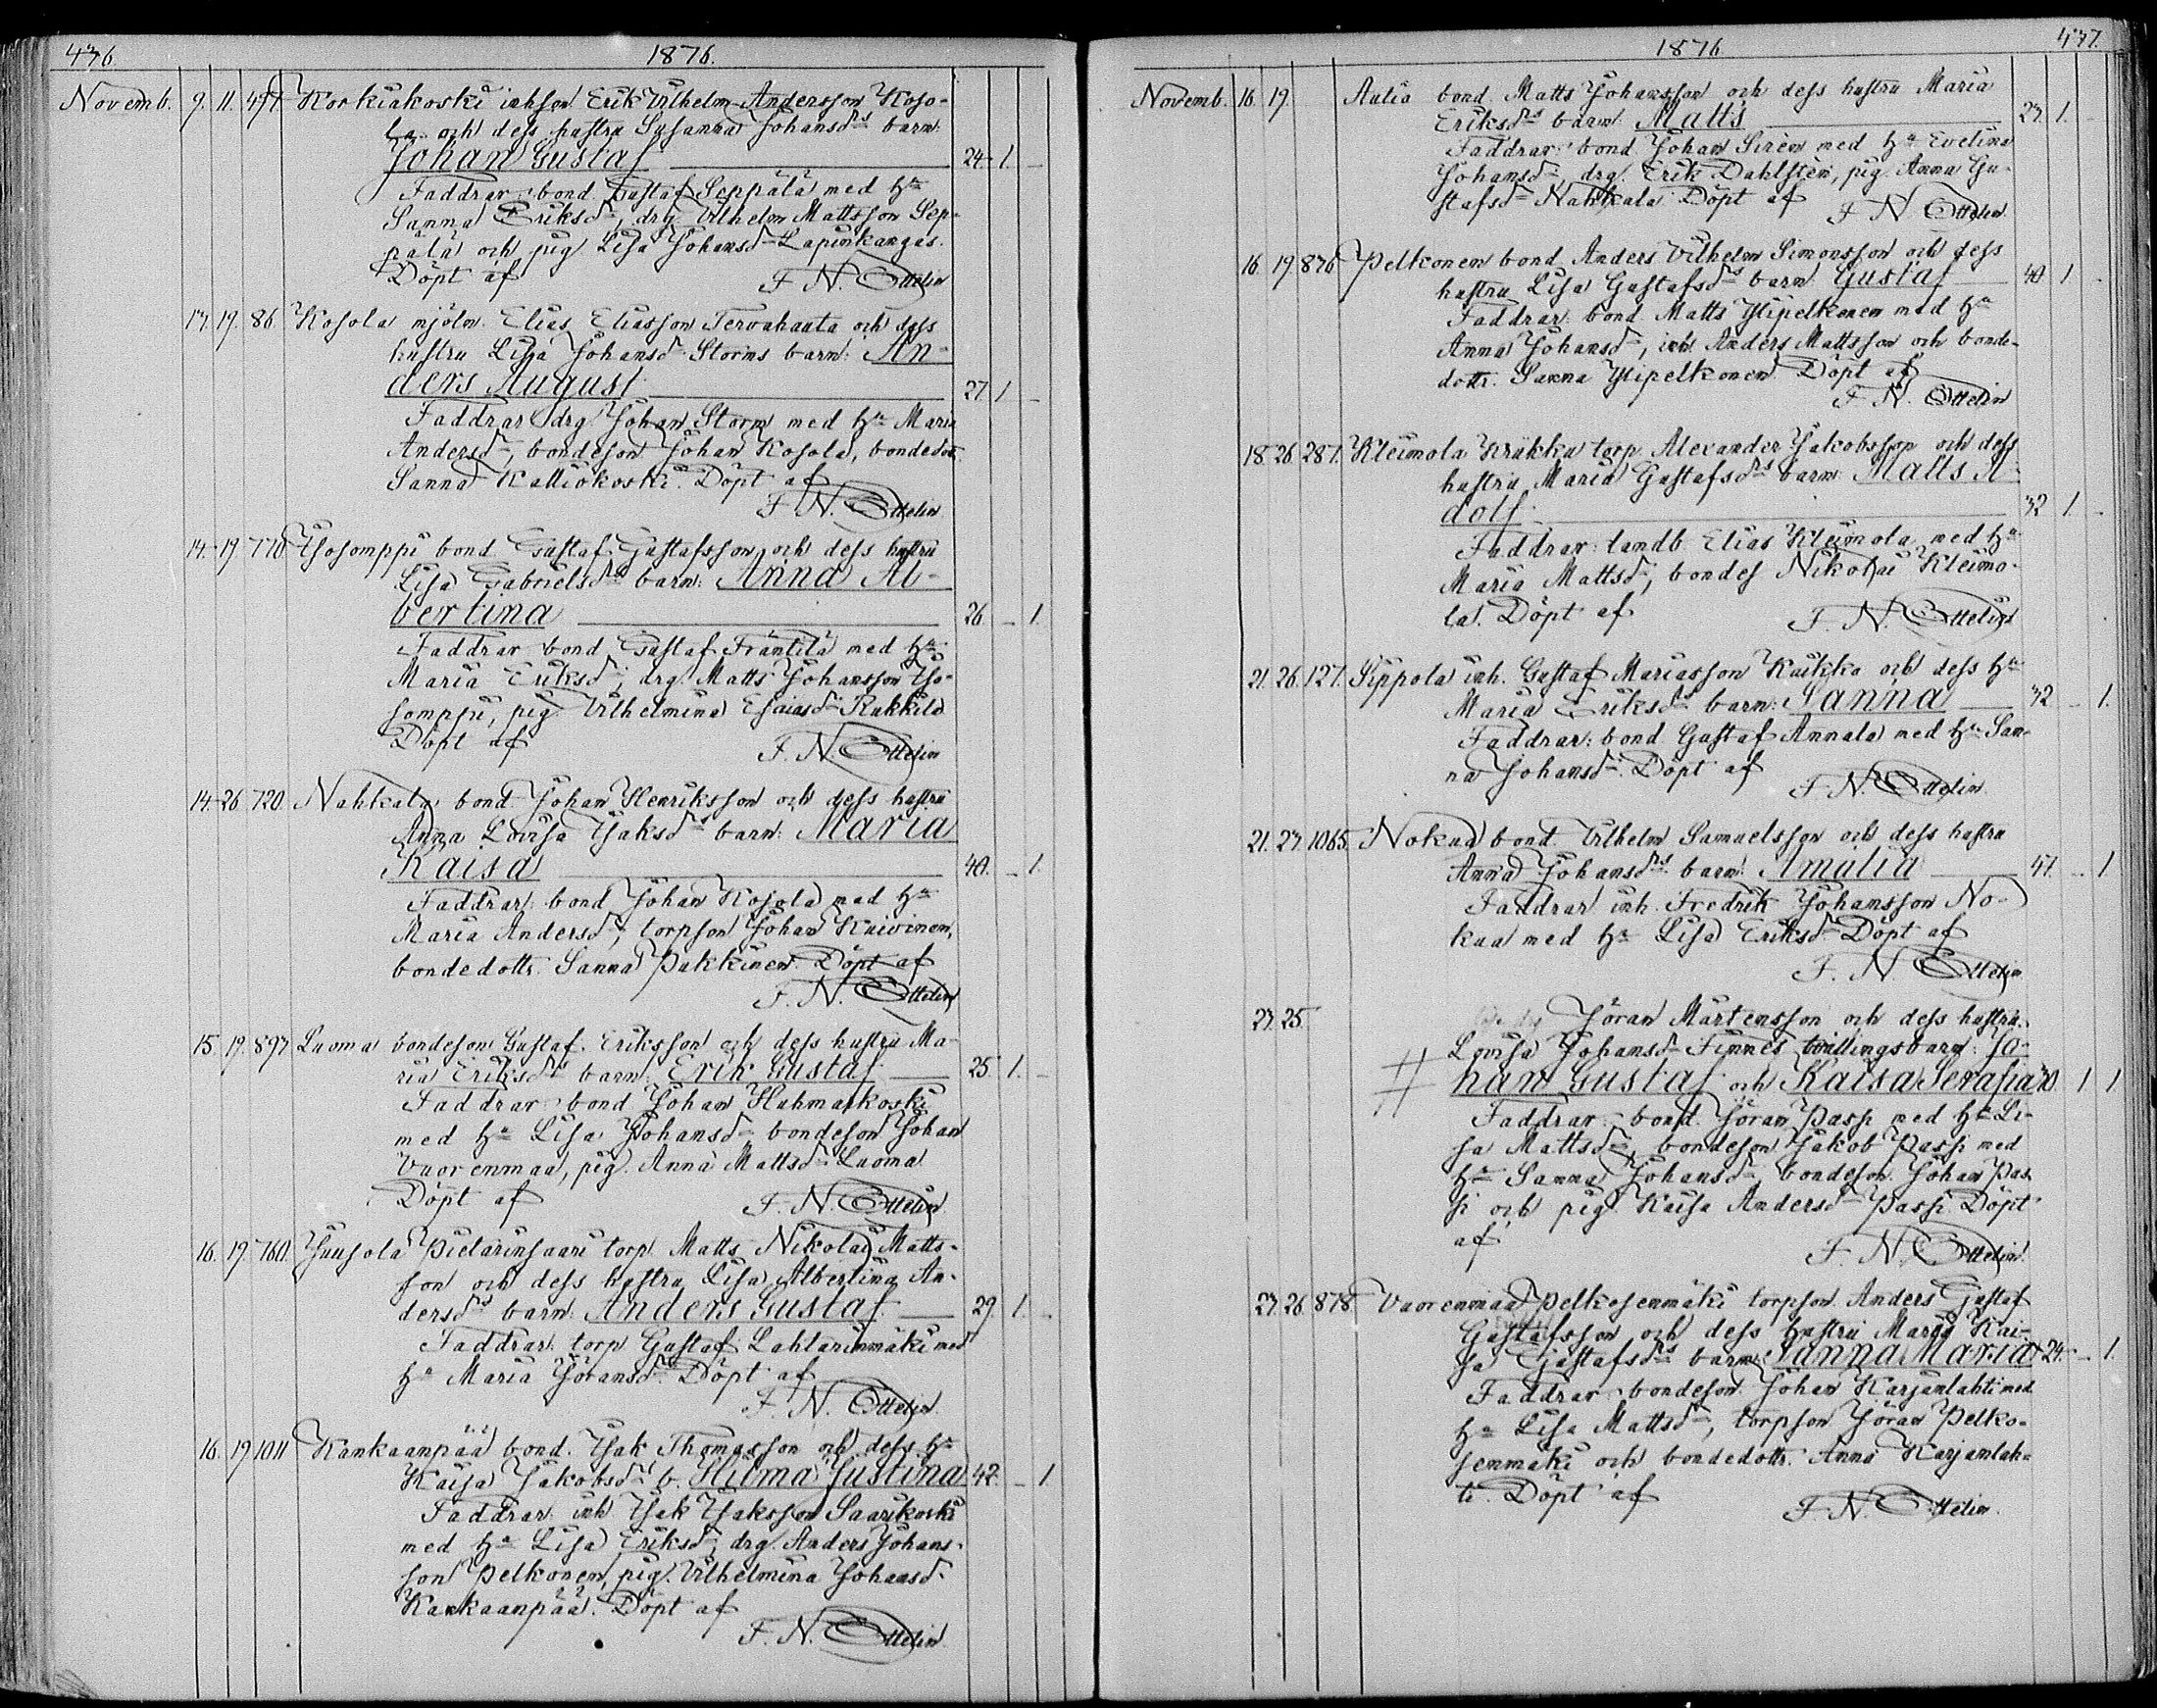 436. 1876.
Novemb. 9. 11. 497. Korkiakoski inhson Erik Vilhelm Andersson Koso-
la och dess hustru Susanna Johansdrs barn:
Johan Gustaf 24. 1. –
Faddrar: bond. Gustaf Seppälä med hu
Sanna Eriksdr, drg. Vilhelm Mattsson Sep-
pälä och pig. Lisa Johansdr Lapinkangas.
Döpt af F. N. Ottelin
13. 19. 86. Kosola mjöln. Elias Eliasson Tervahauta och dess
hustru Lisa Johansdr Storms barn: An-
ders August 27. 1. –
Faddrar drg. Johan Storm med hu Maria
Andersdr, bondeson Johan Kosola, bondedott.
Sanna Kattiokoski. Döpt af
F. N. Ottelin
14. 19. 770. Isosomppi bond. Gustaf Gustafsson och dess hustru
Lisa Gabrielsdrs barn: Anna Al-
bertina 26. – 1.
Faddrar bond. Gustaf Frantilä med hu
Maria Eriksdr, drg. Matts Johansson Iso-
somppi, pig. Vilhelmina Esaiasdr Rukkila
Döpt af F. N. Ottelin
14. 26. 720. Nahkala bond. Johan Henriksson och dess hustru
Anna Lovisa Isaksdrs barn: Maria
Kaisa 40. – 1.
Faddrar: bond. Johan Kosola med hu
Maria Andersdr, torpson Johan Kaivinen,
bondedottr. Sanna Pakkinen. Döpt af
F. N. Ottelin
15. 19. 897. Luoma bondeson Gustaf Eriksson och dess hustru Ma-
ria Eriksdrs barn: Erik Gustaf 25. 1. –
Faddrar: bond. Johan Hahmarkoski
med hu Lisa Johansdr, bondeson Johan
Vuorenmaa, pig. Anna Mattsdr Luoma
Döpt af F. N. Ottelin
16. 19. 760. Juusola Pietarinsaari torp. Matts Nikolai Matts-
son och dess hustru Lisa Albertina An-
dersdrs barn: Anders Gustaf 29. 1. –
Faddrar: torp Gustaf Lahtarinmäki med
hu Maria Jöransdr. Döpt af
F. N. Ottelin
16. 19. 1011 Kankaanpää bond. Isak Thomasson och dess hu
Kaisa Jakobsdrs b. Hilma Justina 42. – 1.
Faddrar: inh. Isak Isaksson Saarikoski
med hu Lisa Eriksdr, drg. Anders Johans-
son Pelkonen, pig. Vilhelmina Johansdr
Kankaanpää. Döpt af
F. N. Ottelin
1876. 437.
Novemb. 16. 19. Autio bond. Matts Johansson och dess hustru Maria
Eriksdrs barn: Matts 23. 1. –
Faddrar: bond. Johan Sirén med hu Evelina
Johansdr, drg. Erik Dahlstén, pig. Anna Gu-
stafsdr Nahkala. Döpt af F. N. Ottelin
16. 19. 876. Pelkonen bond. Anders Vilhelm Simonsson och dess
hustru Lisa Gustafsdrs barn: Gustaf 40. 1. –
Faddrar: bond. Matts Ylipelkonen med hu
Anna Johansdr, inh. Anders Mattsson och bonde-
dottr. Sanna Ylipelkonen. Döpt af
F. N. Ottelin
18. 26. 287. Kleimola Kräkka torp. Alexander Jakobsson och dess
hustru Maria Gustafsdrs barn: Matts A-
dolf 32. 1. –
Faddrar: landb. Elias Kleimola med hu
Maria Mattsdr, bondes Nikolai Kleimo-
la. Döpt af F. N. Ottelin
21. 26. 127. Sippola inh. Gustaf Mariasson Kuikka och dess hu
Maria Eriksdrs barn: Sanna 32. – 1.
Faddrar: bond Gustaf Annala med hu San-
na Johansdr. Döpt af
F. N. Ottelin
21. 23. 1065. Nokua bond. Vilhelm Samuelsson och dess hustru
Anna Johansdrs barn: Amalia 41. – 1
Faddrar inh. Fredrik Johansson No-
kua med hu Lisa Eriksdr. Döpt af
F. N. Ottelin
23. 25. Jöran Mårtensson och dess hustru
Lovisa Johansdr Finnes tvillingsbarn: Jo-
han Gustaf och Kaisa Serafia 30. 1 1
Faddrar: bond. Jöran Passi med hu Li-
sa Mattsdr, bondeson Jakob Passi med
hu Sanna Johansdr, bondeson Johan Pas-
si och pig. Kaisa Andersdr Passi. Döpt
af F. N. Ottelin
23. 26. 878. Vuorenmaa Pelkosenmäki torpson Anders Gustaf
Gustafsson och dess hustru Maria Kai-
sa Gustafsdrs barn: Sanna Maria 24. – 1.
Faddrar: bondeson Johan Karjanlahti med
hu Lisa Mattsdr, torpson Jöran Pelko-
senmäki och bondedottr. Anna Karjanlah-
ti. Döpt af F. N. Ottelin.